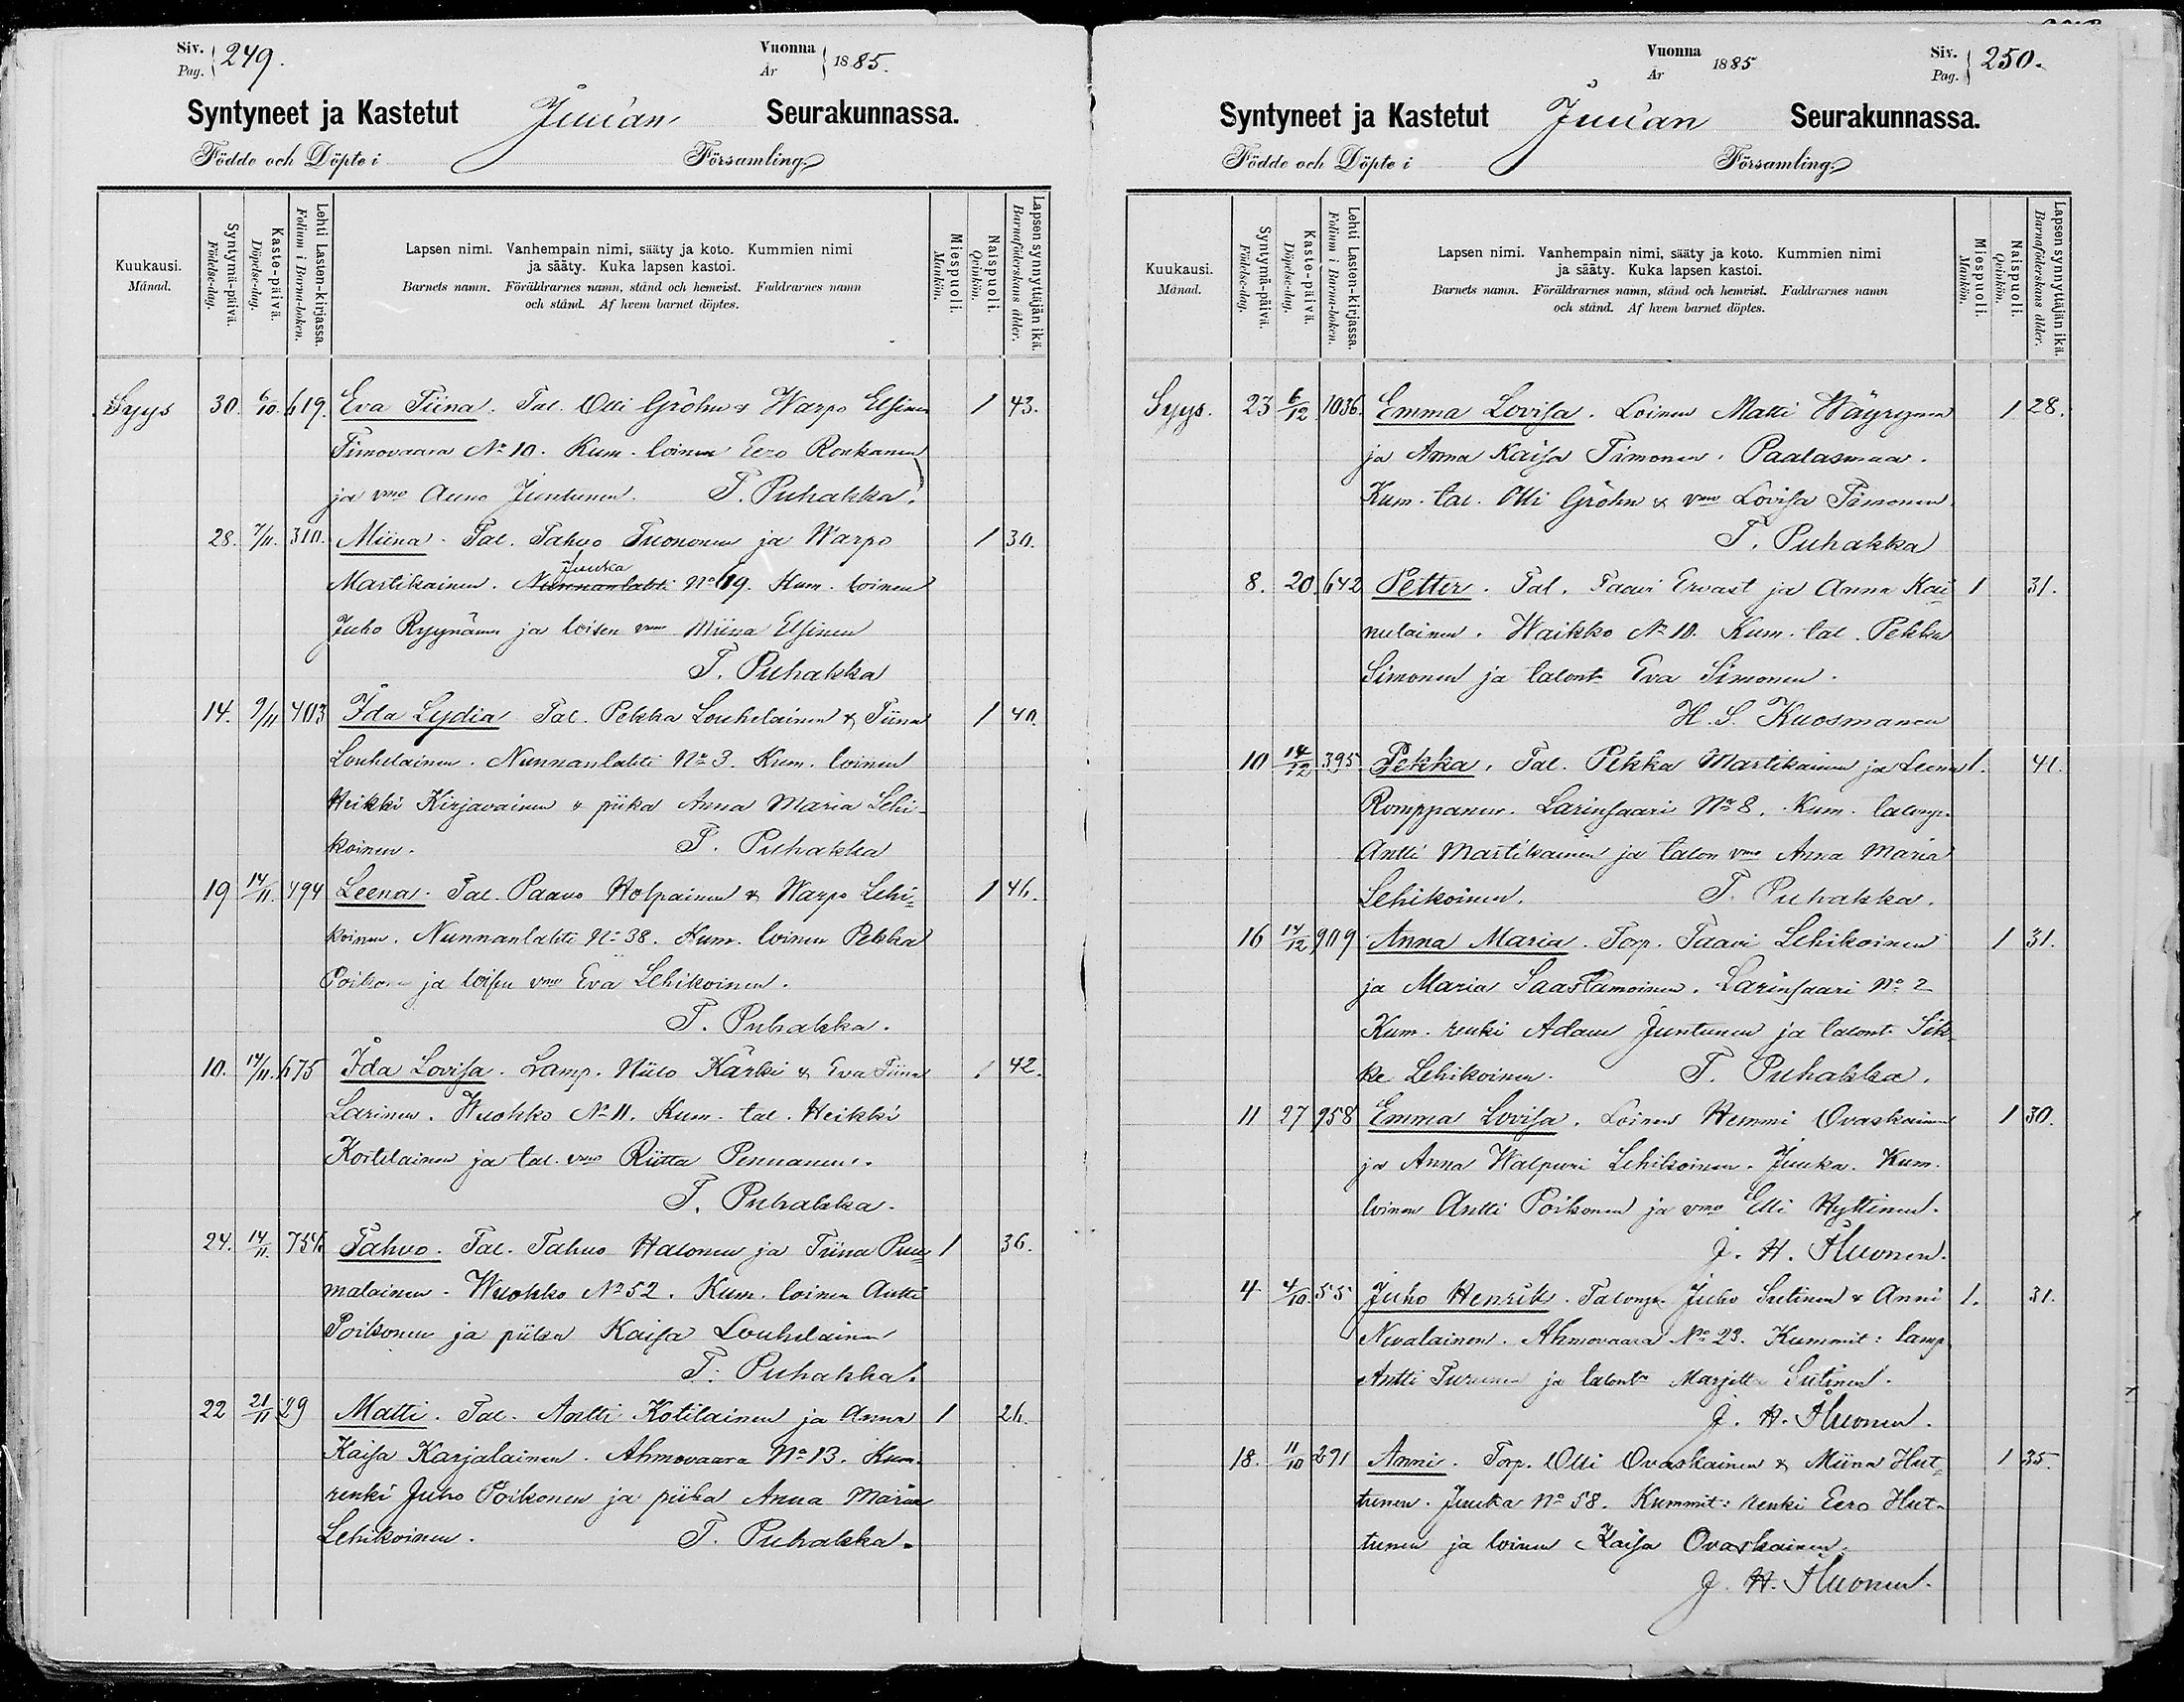 Siv. Pag. 249.
Vuonna År 1885.
Syntyneet ja Kastetut Juuan Seurakunnassa.
Födde och Döpte i Församling.
Kuukausi. Månad.
Syntymä-päivä. Födelse-dag.
Kaste-päivä. Döpelse-dag.
Lehti Lasten-kirjassa. Folium i Barna-boken.
Lapsen nimi. Vanhempain nimi, sääty ja koto. Kummien nimi
ja sääty. Kuka lapsen kastoi.
Barnets namn. Föräldrarnes namn, stånd och hemvist. Faddrarnes namn
och stånd. Af hvem barnet döptes.
Miespuoli. Mankön.
Naispuoli. Qvinkön.
Lapsen synnyttäjän ikä. Barnaföderskans ålder.
Syys 30. 6/10. 619. Eva Tiina. Tal. Olli Gröhn & Warpo Elsinen 1 43.
Timovaara No 10. Kum. loinen Eero Ronkanen
ja vmo Auno Juntunen. T. Puhakka.
28. 7/11. 310. Miina. Tal. Tahvo Tuononen ja Warpo 1 30.
Juuka
Martikainen. Nunnanlahti No 69. Kum. loinen
Juho Ryynänen ja loisen vmo Miina Elsinen
T. Puhakka
14. 9/11 403 Ida Lydia Tal. Pekka Louhelainen & Tiina 1 40.
Louhelainen. Nunnanlahti No 3. Kum. loinen
Heikki Kirjavainen & piika Anna Maria Lehi-
koinen. T. Puhakka
19 14/11. 494 Leena. Tal. Paavo Holpainen & Warpo Lehi- 1 46.
koinen. Nunnanlahti No 38. Kum. loinen Pekka
Poikonen ja loisen vmo Eva Lehikoinen.
T. Puhakka.
10. 14/11. 675 Ida Lovisa. Lamp. Niilo Kärki & Eva Tiina 1 42.
Larinen. Wuokko No 11. Kum. tal. Heikki
Kortelainen ja tal. vmo Riitta Pennanen.
T. Puhakka.
24. 14/11. 754. Tahvo. Tal. Tahvo Halonen ja Tiina Puu- 1 36.
malainen. Wuokko No 52. Kum. loinen Antti
Poikonen ja piika Kaisa Louhelainen
T. Puhakka.
22 21/11 29 Matti. Tal. Antti Kotilainen ja Anna 1 26.
Kaisa Karjalainen. Ahmovaara No 13. Kum.
renki Juho Poikonen ja piika Anna Maria
Lehikoinen. T. Puhakka.
Vuonna År 1885
Siv. Pag. 250.
Syntyneet ja Kastetut Juuan Seurakunnassa.
Födde och Döpte i Församling.
Kuukausi. Månad.
Syntymä-päivä. Födelse-dag.
Kaste-päivä. Döpelse-dag.
Lehti Lasten-kirjassa. Folium i Barna-boken.
Lapsen nimi. Vanhempain nimi, sääty ja koto. Kummien nimi
ja sääty. Kuka lapsen kastoi.
Barnets namn. Föräldrarnes namn, stånd och hemvist. Faddrarnes namn
och stånd. Af hvem barnet döptes.
Miespuoli. Mankön.
Naispuoli. Qvinkön.
Lapsen synnyttäjän ikä. Barnaföderskans ålder.
Syys. 23 6/12 1036. Emma Lovisa. Loinen Matti Wäyrynen 1 28.
ja Anna Kaisa Timonen. Paalasmaa.
Kum. tal. Olli Gröhn & vmo Lovisa Timonen.
T. Puhakka
8. 20. 642 Petter. Tal. Taavi Ervast ja Anna Kai- 1 31.
nulainen. Waikko No 10. Kum. tal. Pekka
Simonen ja talont. Eva Simonen.
H. S. Kuosmanen
10 14/12 395 Pekka. Tal. Pekka Martikainen ja Leena 1. 41.
Romppanen. Larinsaari No 8. Kum. talonp.
Antti Martikainen ja talon vmo Anna Maria
Lehikoinen. T. Puhakka.
16 14/12 909 Anna Maria. Torp. Taavi Lehikoinen 1 31.
ja Maria Saastamoinen. Larinsaari No 2
Kum. renki Adam Juntunen ja talont. Sik-
ke Lehikoinen. T. Puhakka.
11 27 958 Emma Lovisa. Loinen Hemmi Ovaskainen 1 30.
ja Anna Walpuri Lehikoinen. Juuka. Kum.
loinen Antti Poikonen ja vmo Elli Hyttinen.
J. H. Huonen.
4 4/10. 55 Juho Henrik. Talonp. Juho Sutinen & Anni 1. 31.
Nevalainen. Ahmovaara No 23. Kummit: lamp.
Antti Turunen ja talont. Marjetta Sutinen.
J. H. Huonen.
18. 11/10 291 Anni. Torp. Olli Ovaskainen & Miina Hut- 1 35.
tunen. Juuka No 58. Kummit: renki Eero Hut-
tunen ja loinen Kaisa Ovaskainen.
J. H. Huonen.